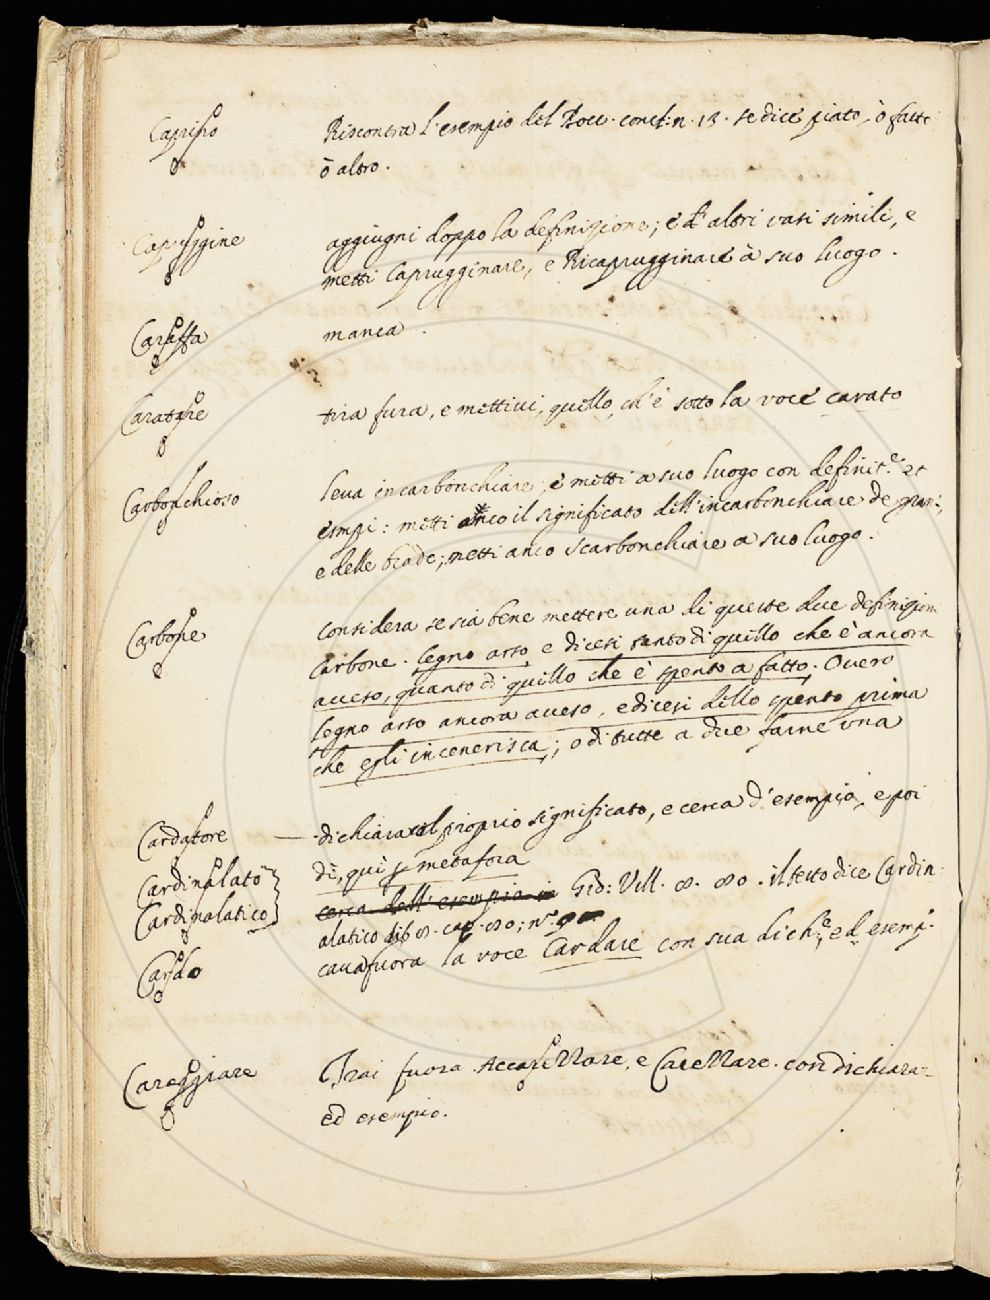 Capriſio Riscontra l'esempio del Bocc. concl: n. 13. se dice piato, ò fatto
ò altro.
Capruggine aggiugni doppo la definizione; e d' altri vasi simili, e
metti Caprugginare, e Ricaprugginare à suo luogo.
Caraffa manca.
Caratare tira fura, e mettivi, quello, ch' è sotto la voce carato
Carbonchioso leva incarbonchiare, e metti a suo luogo con definit.e et
esempi: metti anco il significato dell' incarbonchiare de grani,
e delle biade; metti anco Scarbonchiare a suo luogo.
Carbone Considera se sia bene mettere una di queste due definizioni
Carbone. legno arso, e dicesi tanto di quello che è ancora
acceso, quanto di quello che è spento a fatto. Overo
legno arso ancora acceso, e dicesi dello spento prima
che egli incenerisca; o di tutte a due farne una
Cardatore — dichiara il proprio significato, e cerca d' esempio, e poi
dì, quì p metafora
Cardinalato cerca dell' esempio in Gio: Vill. 8. 80. il testo dice Cardin-
Cardinalatico alatico lib 8. cap. 80; n.º
Cardo cava fuora la voce Cardare con sua dich.e, ed esemp.
Careggiare Trai fuora Accarezzare, e Carezzare. con dichiaraz.
ed esempio.